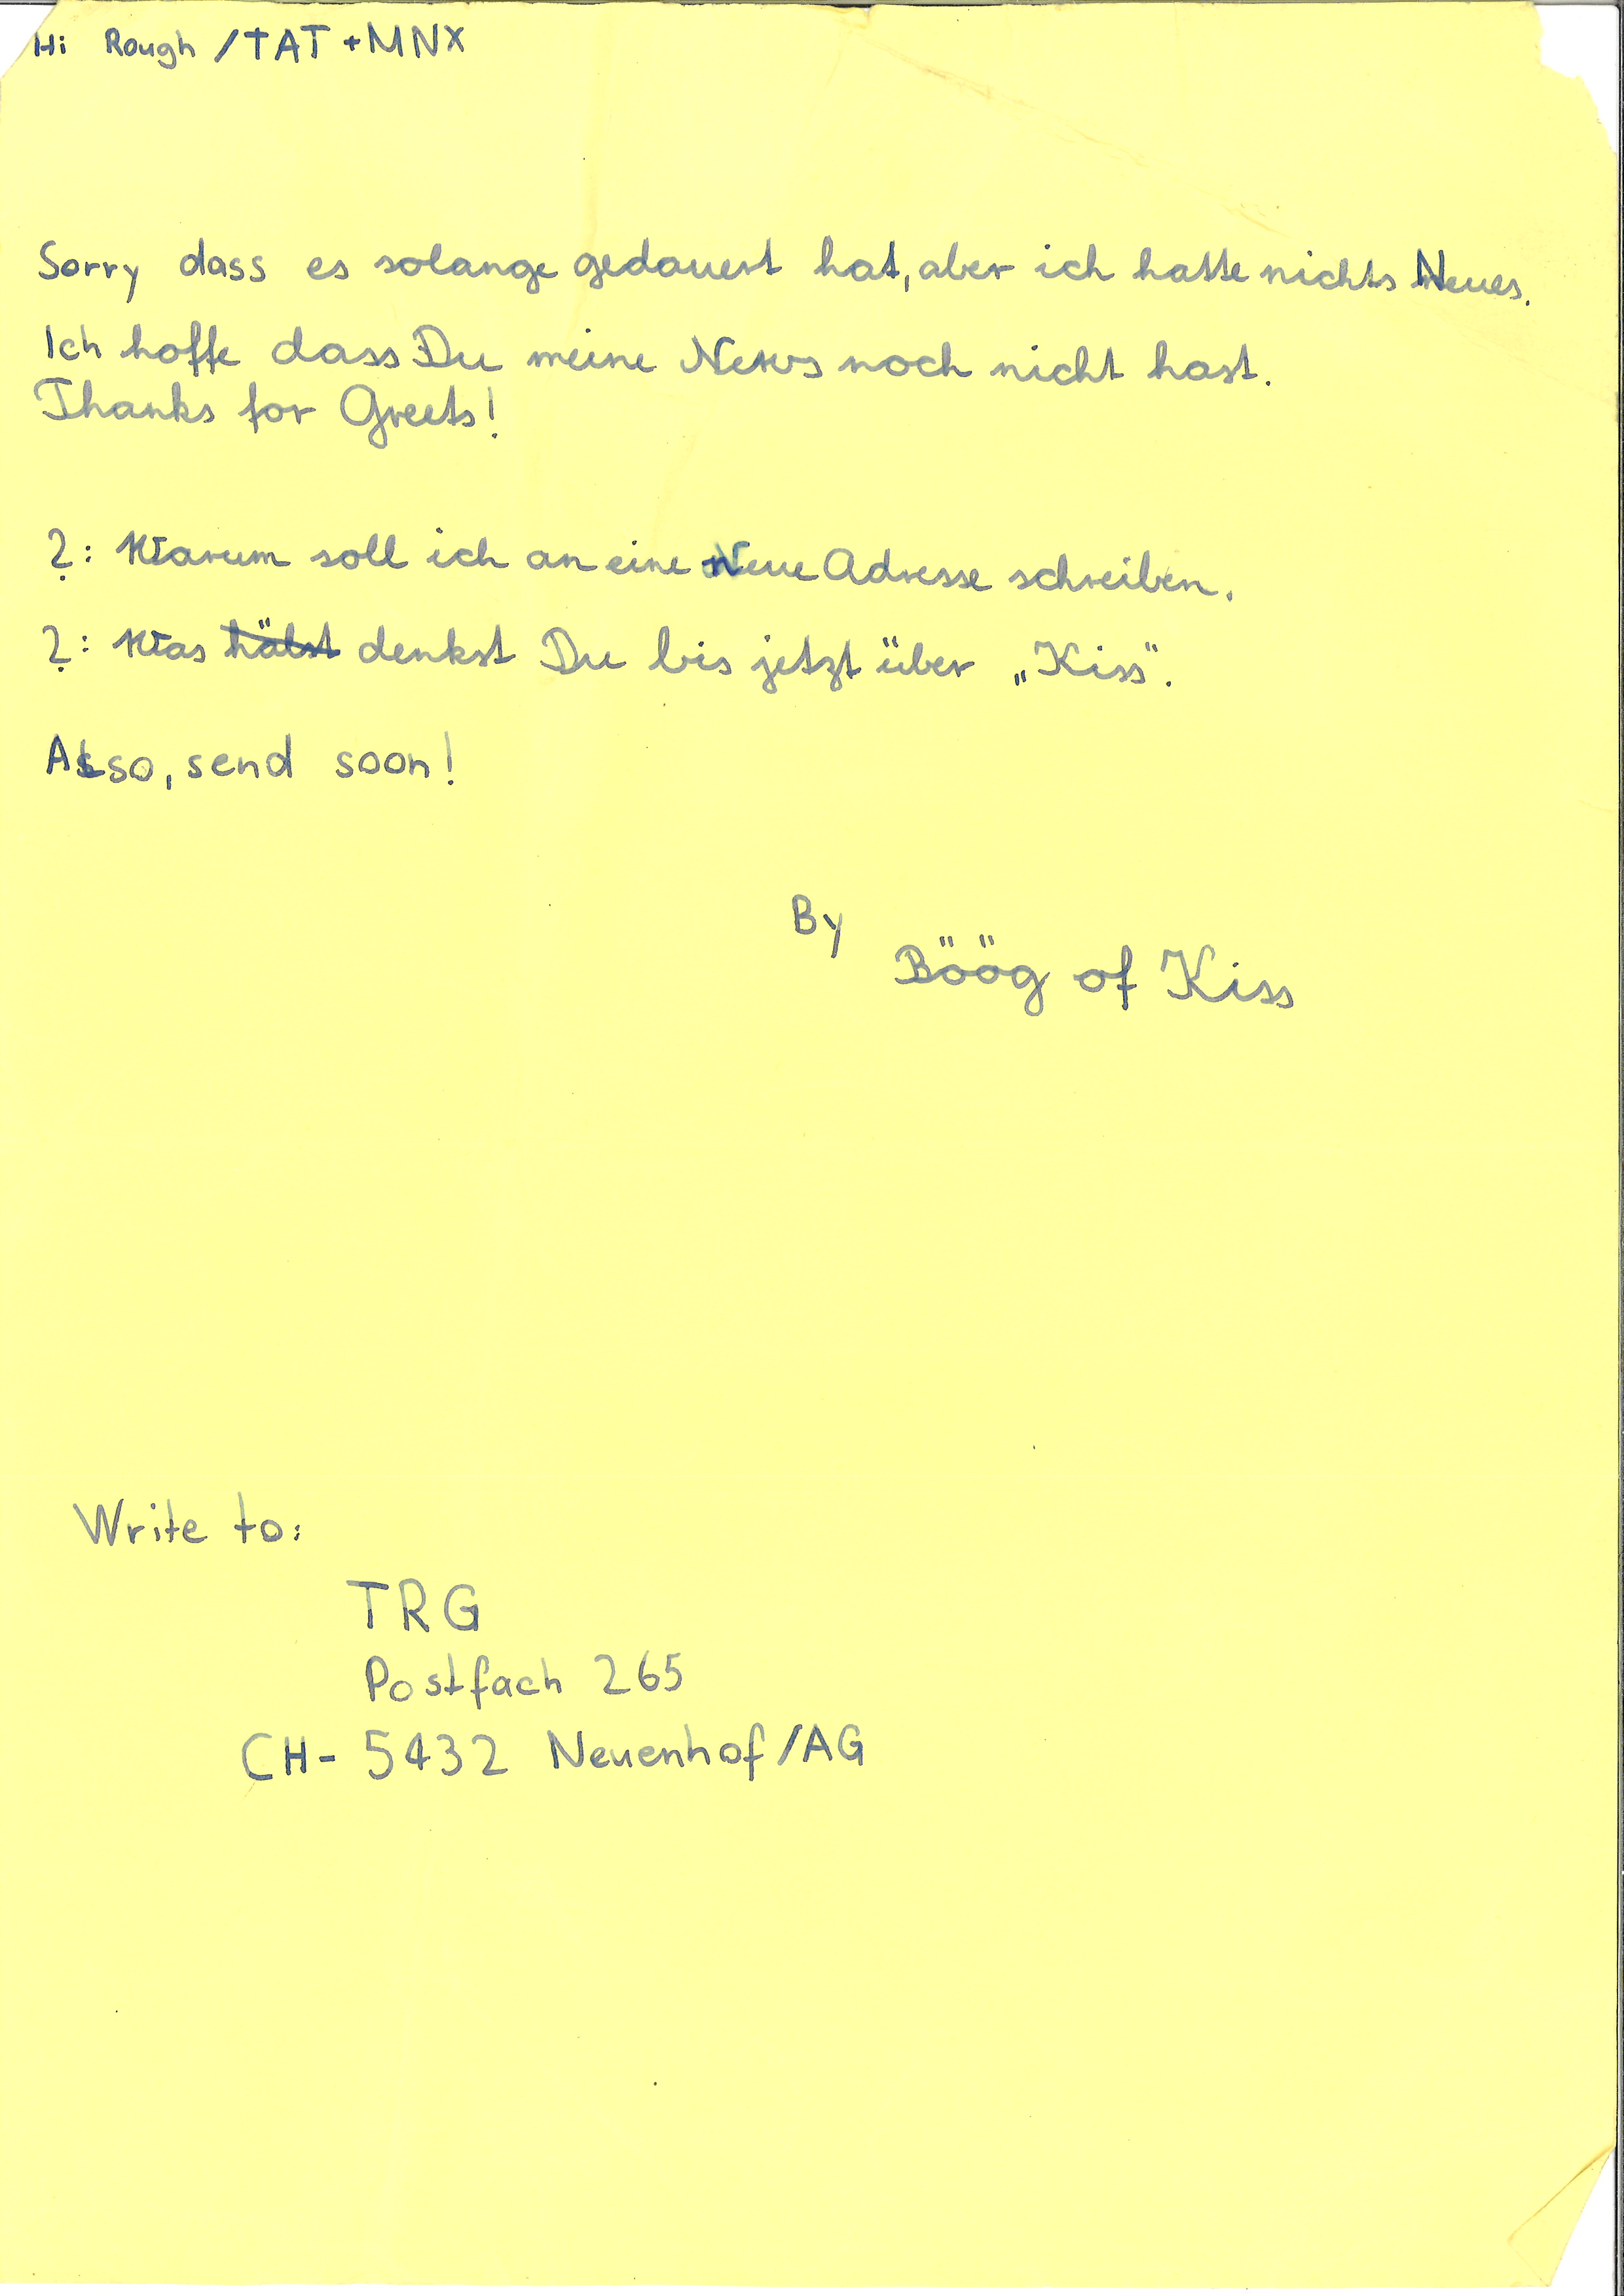 Hi Rough /TAT + MNX
Sorry dass es solange gedauert hat, aber ich hatte nichts Neues.
Ich hoffe dass Du meine News noch nicht hast.
Thanks for Greets!
?: Warum soll ich an eine Neue Adresse schreiben.
?: Was hälst denkst Du bis jetzt über „Kiss".
Also, send soon!
By
Böög of Kiss
Write to:
TRG
Postfach 265
CH- 5432 Neuenhof/AG